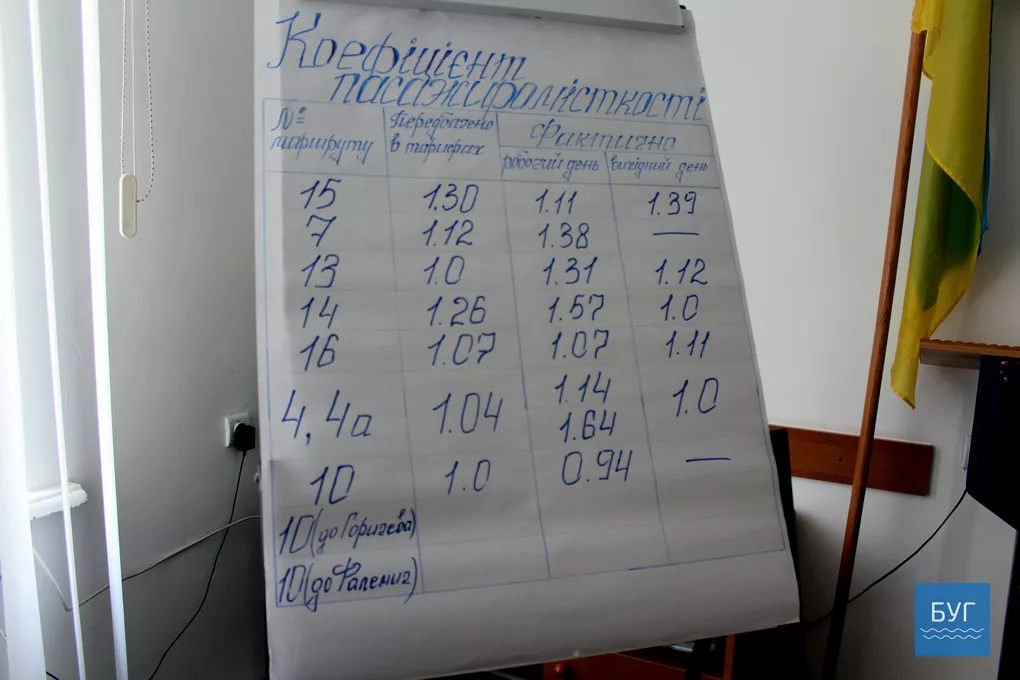 Коефіцієнт
пасажиромісткості
№ маршруту Передбачено в тарифах Фактично
робочий день вихідний день
15 1.30 1.11 1.39
7 1.12 1.38 —
13 1.0 1.31 1.12
14 1.26 1.57 1.0
16 1.07 1.07 1.11
4, 4а 1.04 1.14 1.0
1.64
10 1.0 0.94 —
10 (до Горигева)
10 (до Фалемиг)
БУГ